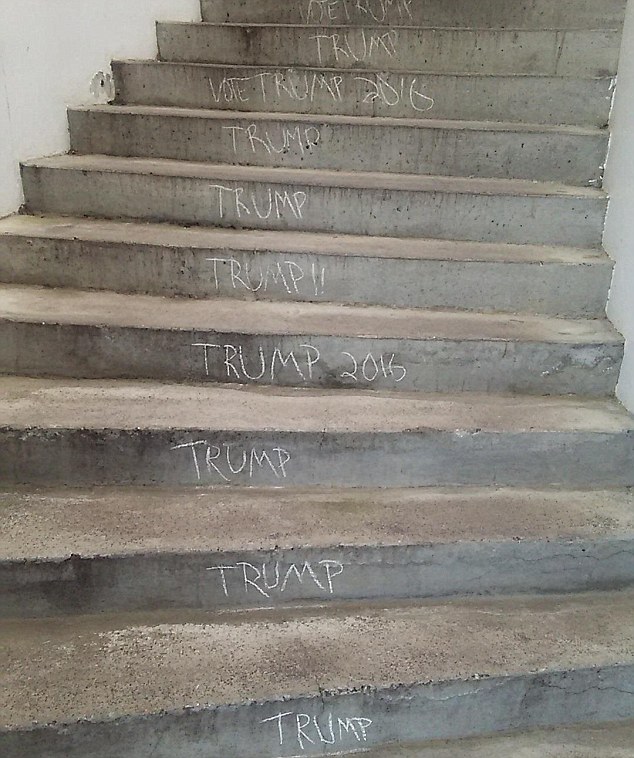 VOTE TRUMP
TRUMP
VOTE TRUMP 2016
TRUMP
TRUMP
TRUMP!!
TRUMP 2016
TRUMP
TRUMP
TRUMP